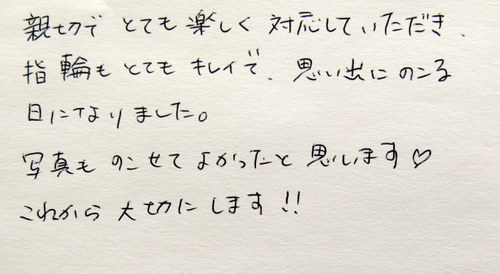 親切で とても 楽しく 対応して いただき、
指輪も とても キレイで、思い出に のこる
日になりました。
写真も のこせて よかったと 思います♡
これから 大切に します!!